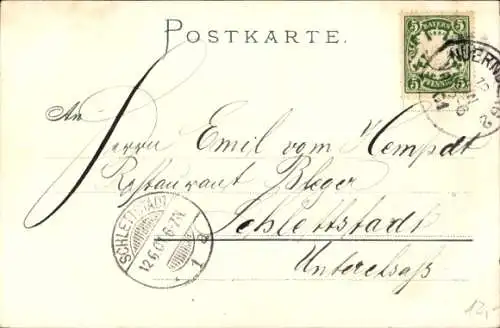 POSTKARTE.
BAYERN
5 5
PFENNIG
5 5
An
Herrn Emil vom Hempdt
Restaurant Bleger
Schlettstadt
Unterelsaß
SCHLETTSTADT
12.6.01.6-7N.
* 1 a
12,-